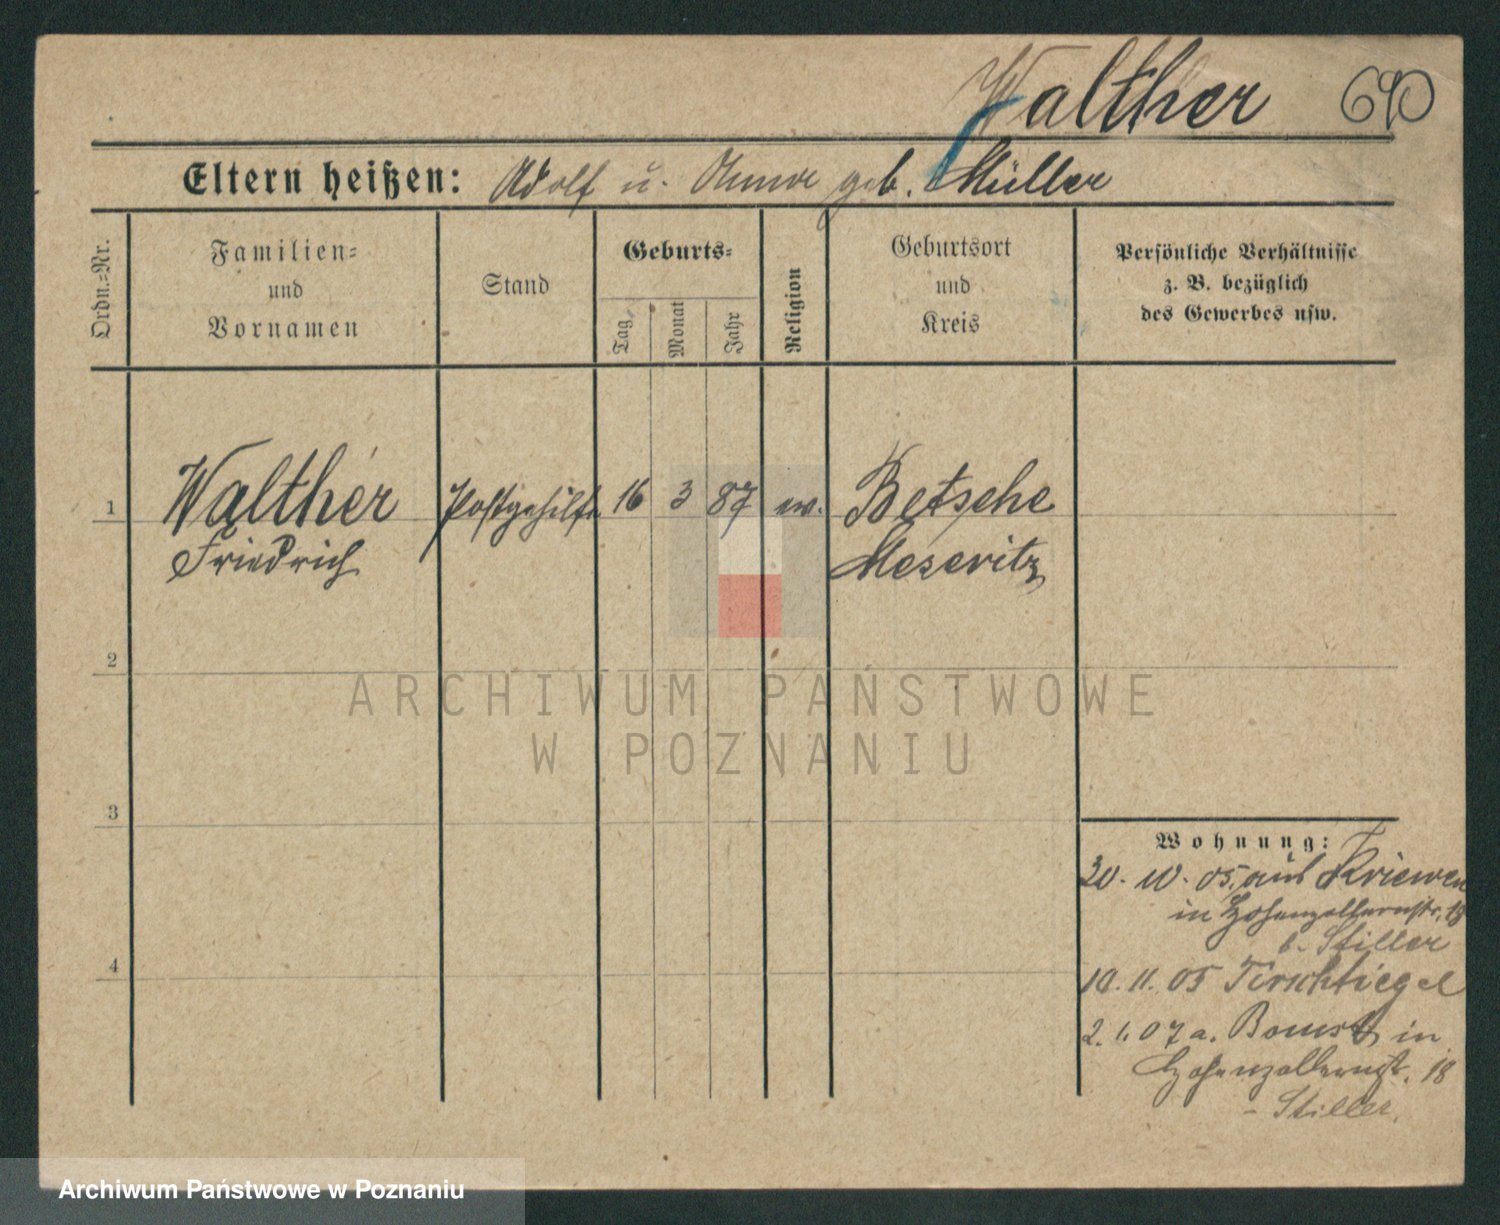 Walther 690
Eltern heißen: Adolf u. geb. Müller
Ordn.-Nr.
Familien-
und
Vornamen
Stand
Geburts-
Tag
Monat
Jahr
Religion
Geburtsort
und
Kreis
Persönliche Verhältnisse
z. B. bezüglich
des Gewerbes usw.
1 Walther Postgehilfe 16 3 87 ev. Betsche
Friedrich Meseritz
2
ARCHIWUM PAŃSTWOWE
W POZNANIU
3
Wohnung:
30. 10. 05. aus Kriewen
in Hohenzollernstr. 18
b. Stiller
4
10. 11. 05 Tirschtiegel
2. 1. 07 a. Bomst in
Hohenzollernstr. 18
- Stiller.
Archiwum Państwowe w Poznaniu